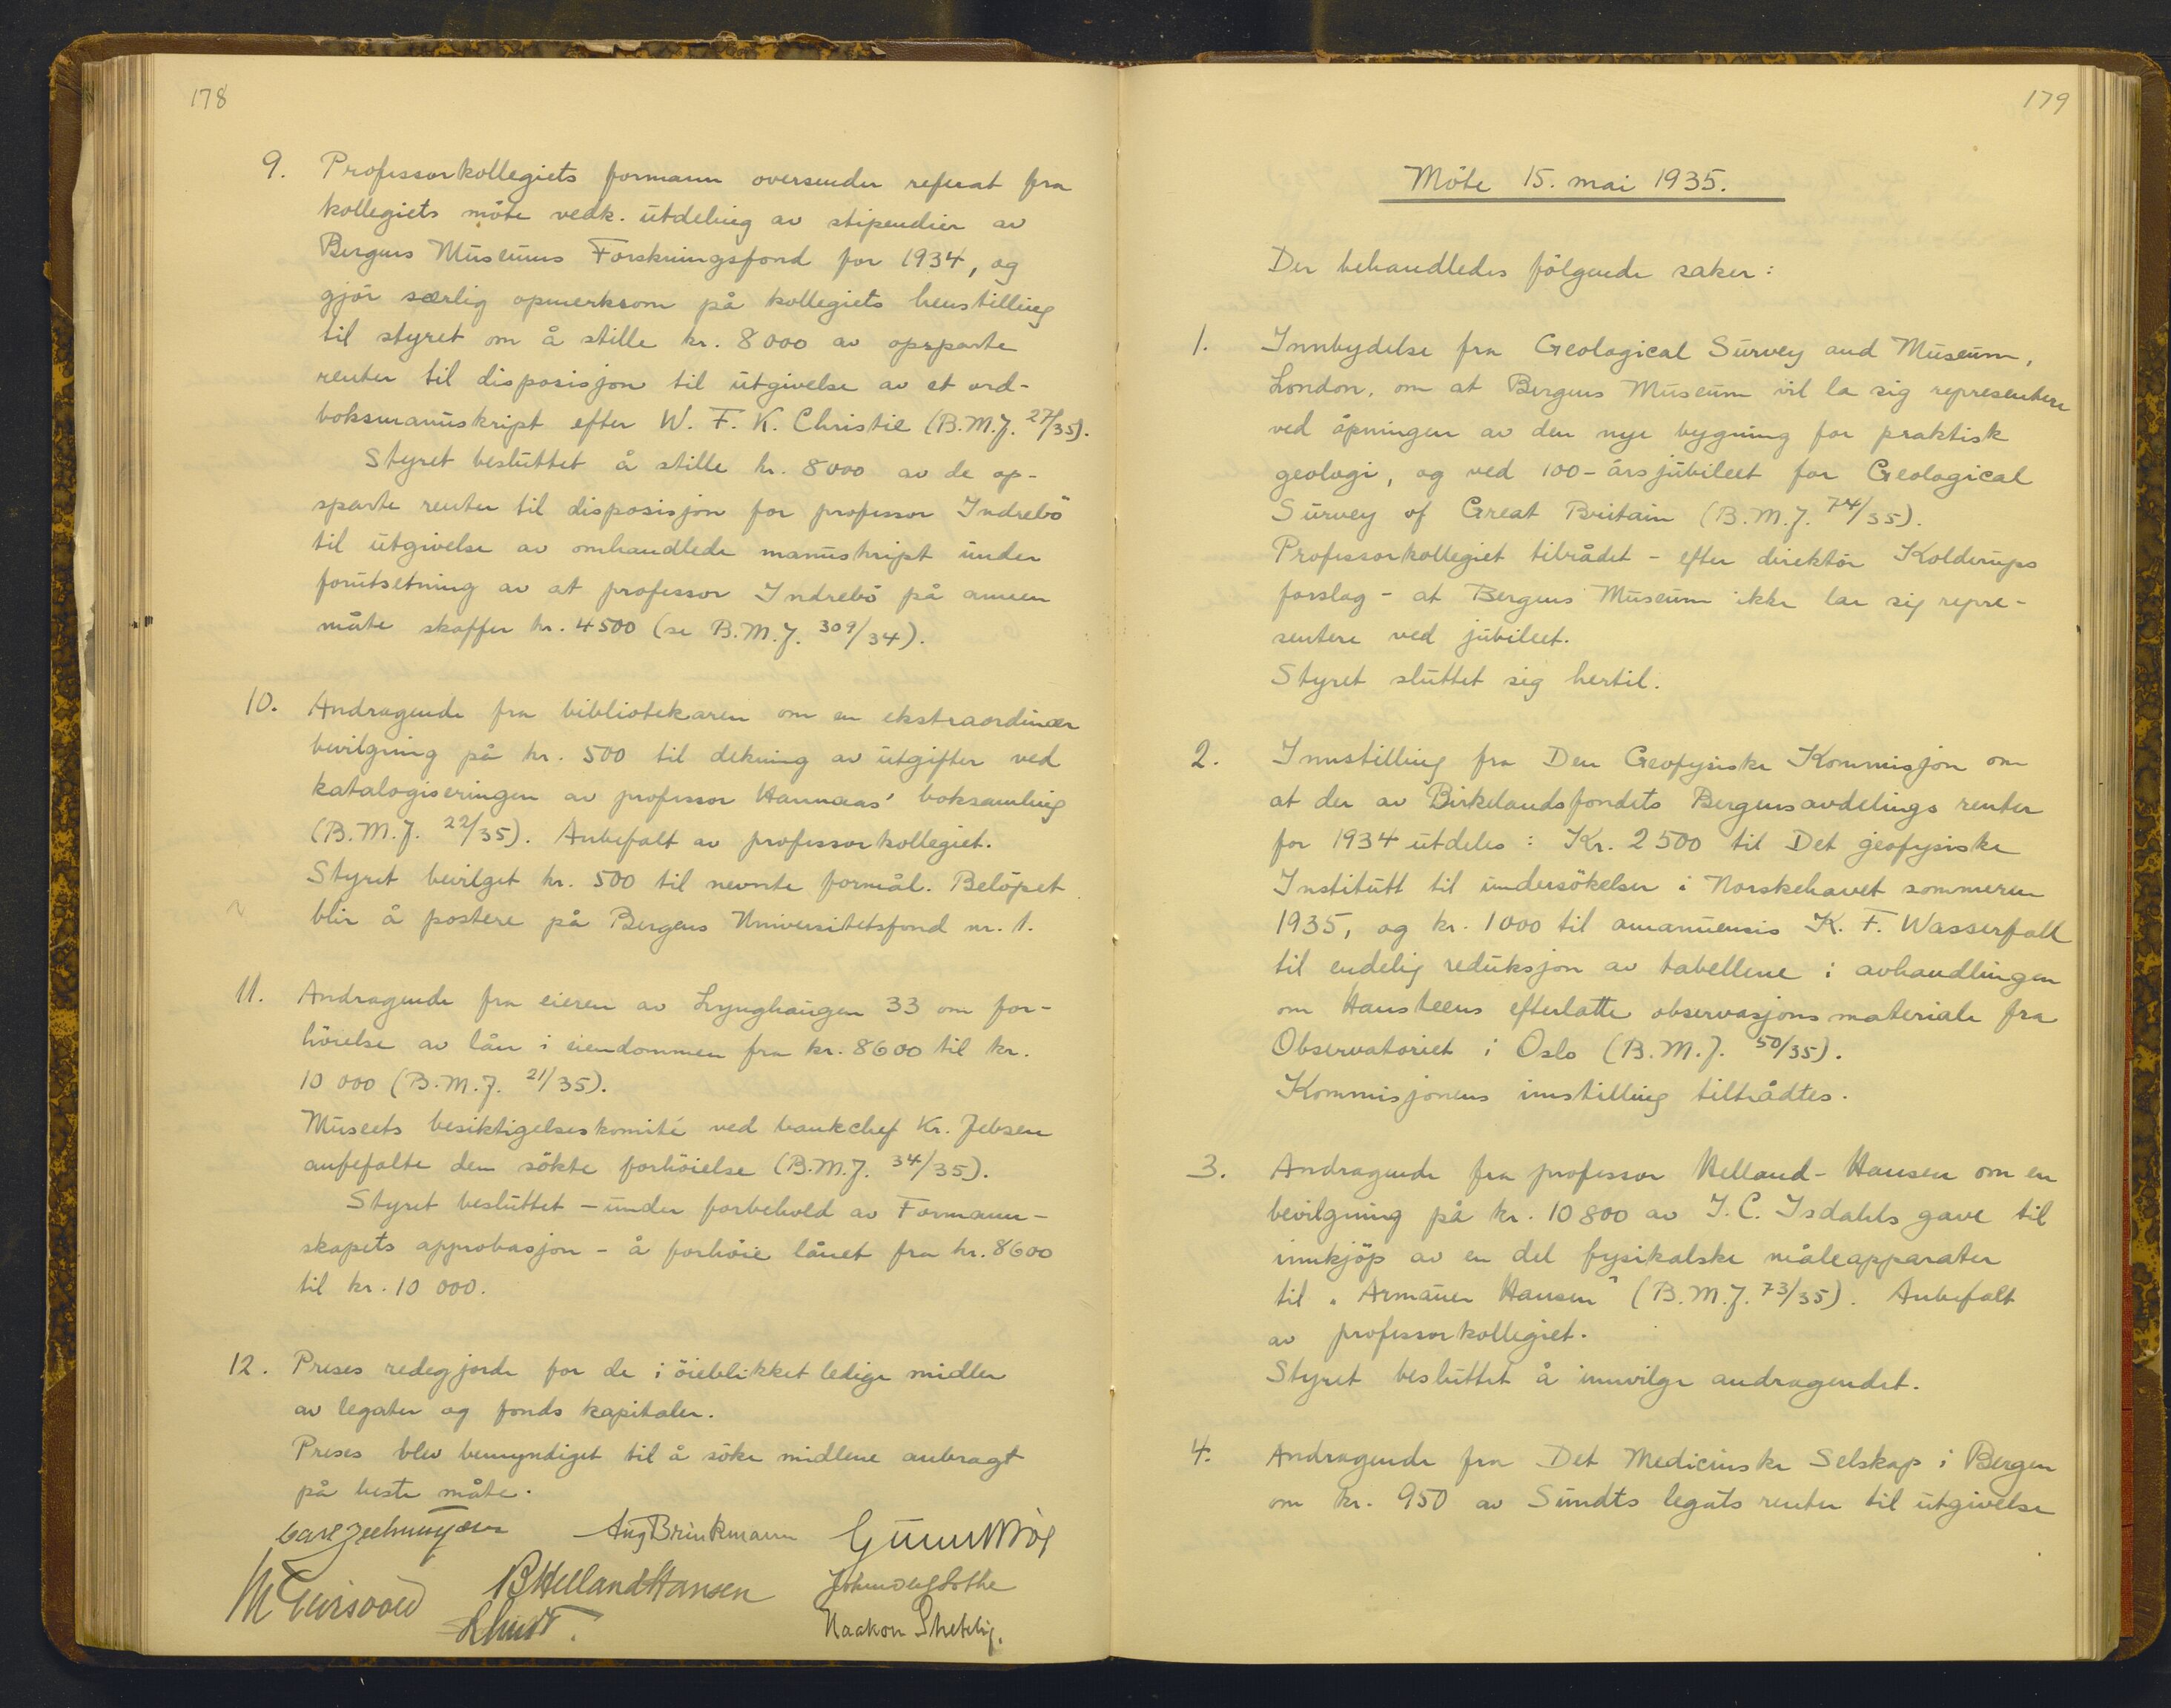 178
9. Professorkollegiets formann oversender referat fra
kollegiets möte vedk. utdeling av stipendier av
Bergens Museums Forskningsfond for 1934, og
gjör særlig opmerksom på kollegiets henstilling
til styret om å stille kr. 8000 av opsparte
renter til disposisjon til utgivelse av et ord-
boksmanuskript efter W. F. K. Christie (B.M.J. 27/35).
Styret besluttet å stille kr. 8000 av de op-
sparte renter til disposisjon for professor Indrebö
til utgivelse av omhandlede manuskript under
forutsetning av at professor Indrebö på annen
måte skaffer kr. 4500 (se B.M.J. 309/34).
10. Andragende fra bibliotekaren om en ekstraordinær
bevilgning på kr. 500 til dekning av utgifter ved
katalogiseringen av professor Hannaas' boksamling
(B.M.J. 22/35). Anbefalt av professorkollegiet.
Styret bevilget kr. 500 til nevnte formål. Belöpet
blir å postere på Bergens Universitetsfond nr. 1.
11. Andragende fra eieren av Lynghaugen 33 om for-
höielse av lån i eiendommen fra kr. 8600 til kr.
10 000 (B.M.J. 21/35).
Museets besiktigelseskomité ved bankchef Kr. Jebsen
anbefalte den sökte forhöielse (B.M.J. 34/35).
Styret besluttet - under forbehold av Formann-
skapets approbasjon - å forhöie lånet fra kr. 8600
til kr. 10 000.
12. Preses redegjorde for de i öieblikket ledige midler
av legater og fonds kapitaler.
Preses blev bemyndiget til å söke midlene anbragt
på beste måte.
Aug Brinkmann
B Helland Hansen
Haakon Shetelig.
179
Möte 15. mai 1935.
Der behandledes fölgende saker:
1. Innbydelse fra Geological Survey and Museum,
London, om at Bergens Museum vil la sig representere
ved åpningen av den nye bygning for praktisk
geologi, og ved 100-årsjubileet for Geological
Survey of Great Britain (B.M.J. 74/35).
Professorkollegiet tilrådet - efter direktör Kolderups
forslag - at Bergens Museum ikke lar sig repre-
sentere ved jubileet.
Styret sluttet sig hertil.
2. Innstilling fra Den Geofysiske Kommisjon om
at der av Birkelandsfondets Bergensavdelings renter
for 1934 utdeles: Kr. 2500 til Det geofysiske
Institutt til undersökelser i Norskehavet sommeren
1935, og kr. 1000 til amanuensis K. F. Wasserfall
til endelig reduksjon av tabellene i avhandlingen
om Hansteens efterlatte observasjonsmateriale fra
Observatoriet i Oslo (B.M.J. 50/35).
Kommisjonens innstilling tiltrådtes.
3. Andragende fra professor Helland-Hansen om en
bevilgning på kr. 10800 av I. C. Isdahls gave til
innkjöp av en del fysikalske måleapparater
til "Armauer Hansen" (B.M.J. 73/35). Anbefalt
av professorkollegiet.
Styret besluttet å innvilge andragendet.
4. Andragende fra Det Medicinske Selskap i Bergen
om kr. 950 av Sundts legats renter til utgivelse